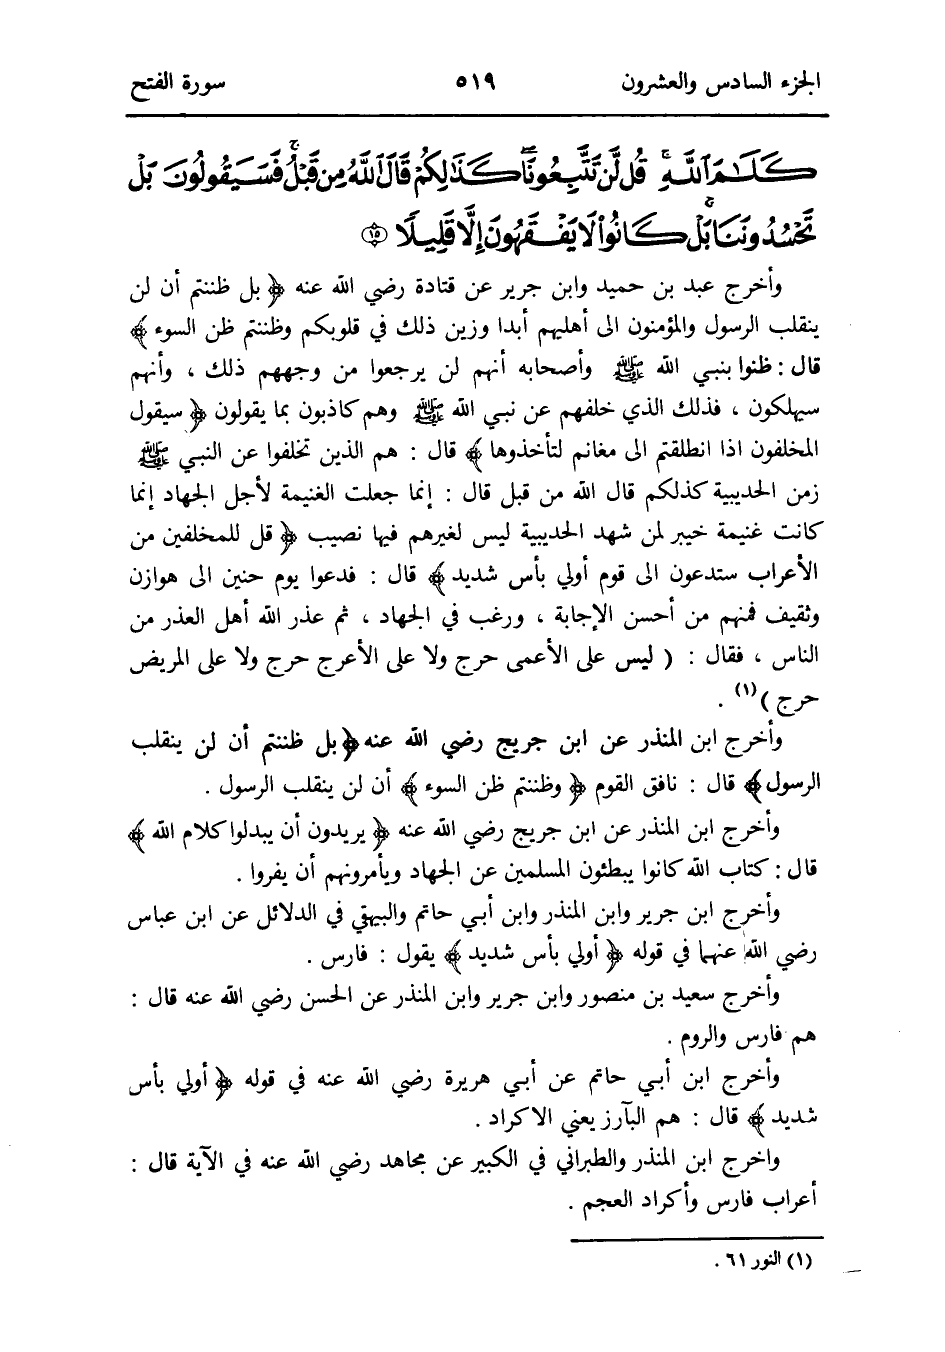 الجزء السادس والعشرون ٥١٩ سورة الفتح
كَلَـٰمَ ٱللَّهِ ۚ قُل لَّن تَتَّبِعُونَا كَذَٰلِكُمْ قَالَ ٱللَّهُ مِن قَبْلُ ۖ فَسَيَقُولُونَ بَلْ
تَحْسُدُونَنَا ۚ بَلْ كَانُوا۟ لَا يَفْقَهُونَ إِلَّا قَلِيلًا ١٥
وأخرج عبد بن حميد وابن جرير عن قتادة رضي الله عنه ﴿ بل ظننتم أن لن
ينقلب الرسول والمؤمنون الى أهليهم أبدا وزين ذلك في قلوبكم وظننتم ظن السوء ﴾
قال : ظنوا بنبي الله ﷺ وأصحابه أنهم لن يرجعوا من وجههم ذلك ، وأنهم
سيهلكون ، فذلك الذي خلفهم عن نبي الله ﷺ وهم كاذبون بما يقولون ﴿ سيقول
المخلفون اذا انطلقتم الى مغانم لتأخذوها ﴾ قال : هم الذين تخلفوا عن النبي ﷺ
زمن الحديبية كذلكم قال الله من قبل قال : إنما جعلت الغنيمة لأجل الجهاد إنما
كانت غنيمة خيبر لمن شهد الحديبية ليس لغيرهم فيها نصيب ﴿ قل للمخلفين من
الأعراب ستدعون الى قوم أولي بأس شديد ﴾ قال : فدعوا يوم حنين الى هوازن
وثقيف فمنهم من أحسن الإجابة ، ورغب في الجهاد ، ثم عذر الله أهل العذر من
الناس ، فقال : ( ليس على الأعمى حرج ولا على الأعرج حرج ولا على المريض
حرج ) (١) .
وأخرج ابن المنذر عن ابن جريج رضي الله عنه ﴿ بل ظننتم أن لن ينقلب
الرسول ﴾ قال : نافق القوم ﴿ وظننتم ظن السوء ﴾ أن لن ينقلب الرسول .
وأخرج ابن المنذر عن ابن جريج رضي الله عنه ﴿ يريدون أن يبدلوا كلام الله ﴾
قال : كتاب الله كانوا يبطئون المسلمين عن الجهاد ويأمرونهم أن يفروا .
وأخرج ابن جرير وابن المنذر وابن أبي حاتم والبيهقي في الدلائل عن ابن عباس
رضي الله عنهما في قوله ﴿ أولي بأس شديد ﴾ يقول : فارس .
وأخرج سعيد بن منصور وابن جرير وابن المنذر عن الحسن رضي الله عنه قال :
هم فارس والروم .
وأخرج ابن أبي حاتم عن أبي هريرة رضي الله عنه في قوله ﴿ أولي بأس
شديد ﴾ قال : هم البآرز يعني الاكراد .
واخرج ابن المنذر والطبراني في الكبير عن مجاهد رضي الله عنه في الآية قال :
أعراب فارس وأكراد العجم .
(١) النور ٦١ .